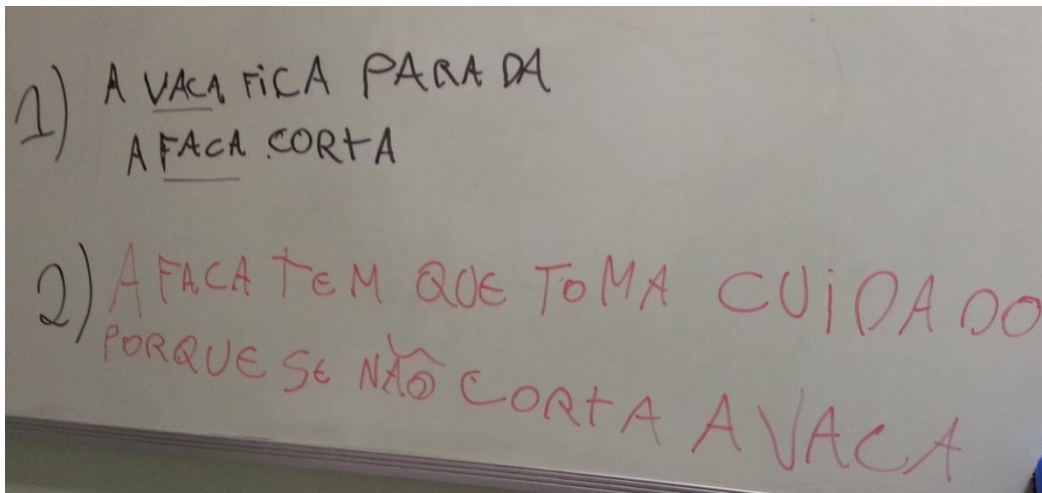 1) A VACA FICA PARADA
A FACA CORTA
2) A FACA TEM QUE TOMA CUIDADO
PORQUE SE NÃO CORTA A VACA